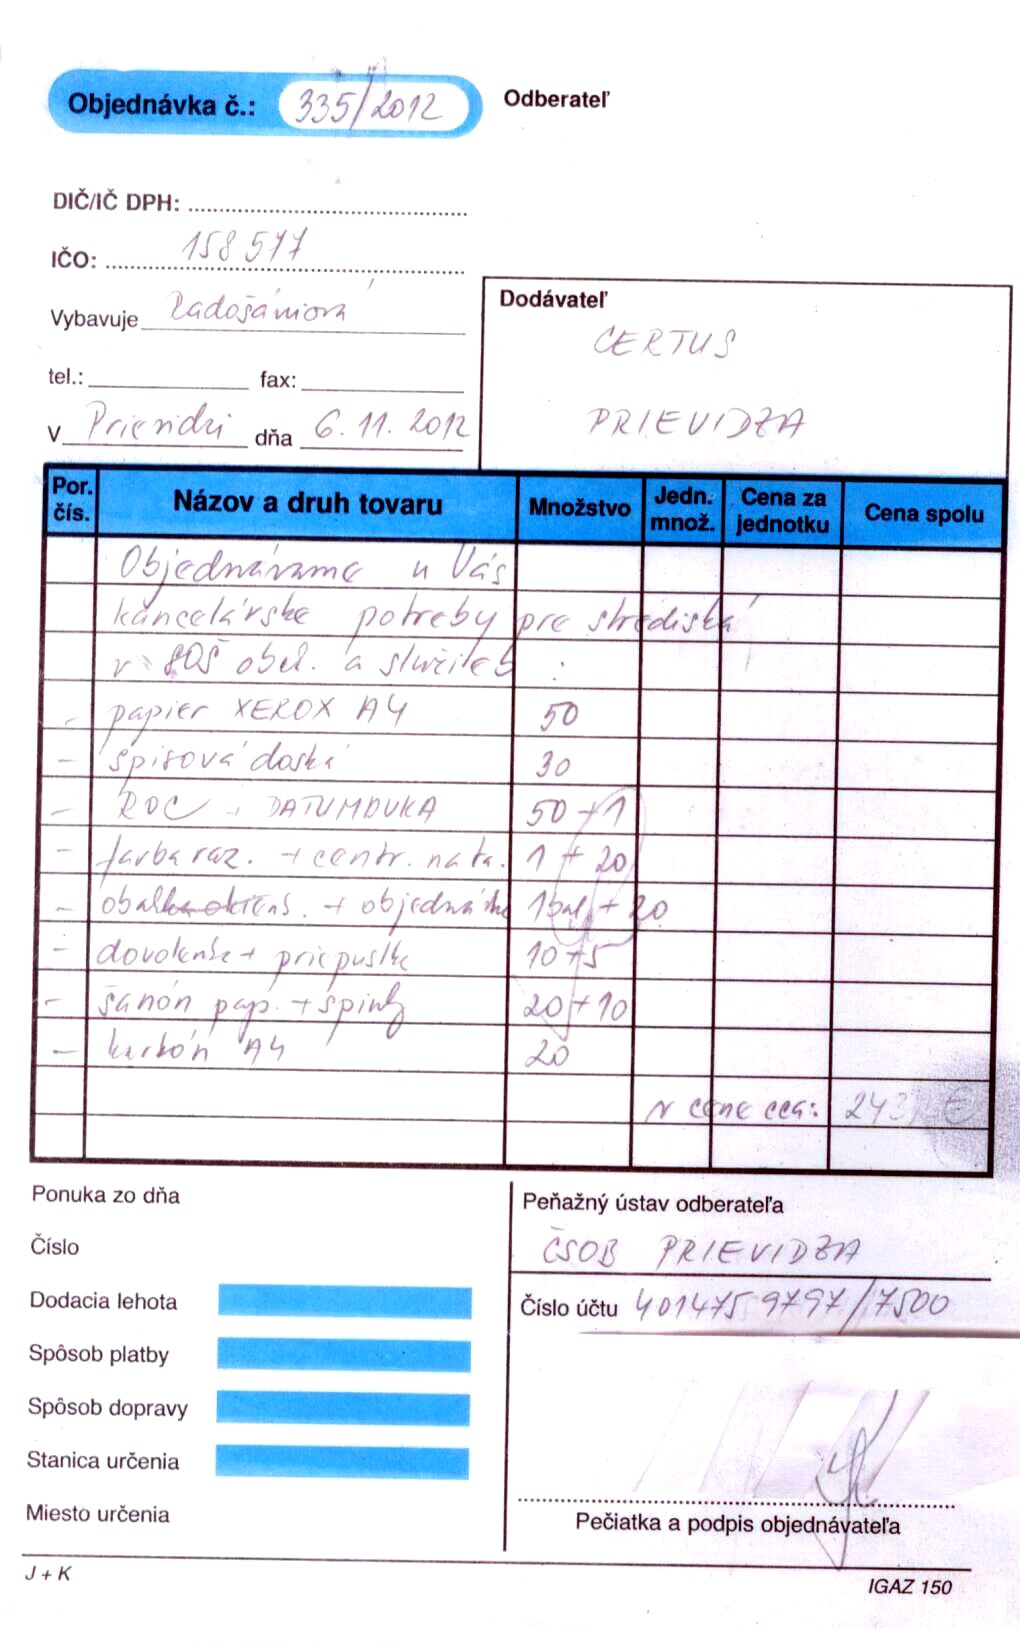 Objednávka č.: 335/2012
Odberateľ
DIČ/IČ DPH:
IČO: 158 577
Vybavuje Radošániová
tel.: fax:
V Prievidzi dňa 6.11.2012
Dodávateľ
CERTUS
PRIEVIDZA
Por. čís. Názov a druh tovaru Množstvo Jedn. množ. Cena za jednotku Cena spolu
Objednávame u Vás
kancelárske potreby pre strediská
v SOŠ obch. a služieb :
- papier XEROX A4 50
- spisová doska 30
- ROC DATUMOVKA 50 + 1
- farba raz. + centr. 1 + 20
- + objednávka 1bal + 20
- dovolenka + priepustka 10 + 5
- šanón pap. + spinky 20 + 10
- karbón A4 20
v cene cca: 243, €
Ponuka zo dňa
Číslo
Dodacia lehota
Spôsob platby
Spôsob dopravy
Stanica určenia
Miesto určenia
Peňažný ústav odberateľa
ČSOB PRIEVIDZA
Číslo účtu 4014759797/7500
Pečiatka a podpis objednávateľa
J + K
IGAZ 150